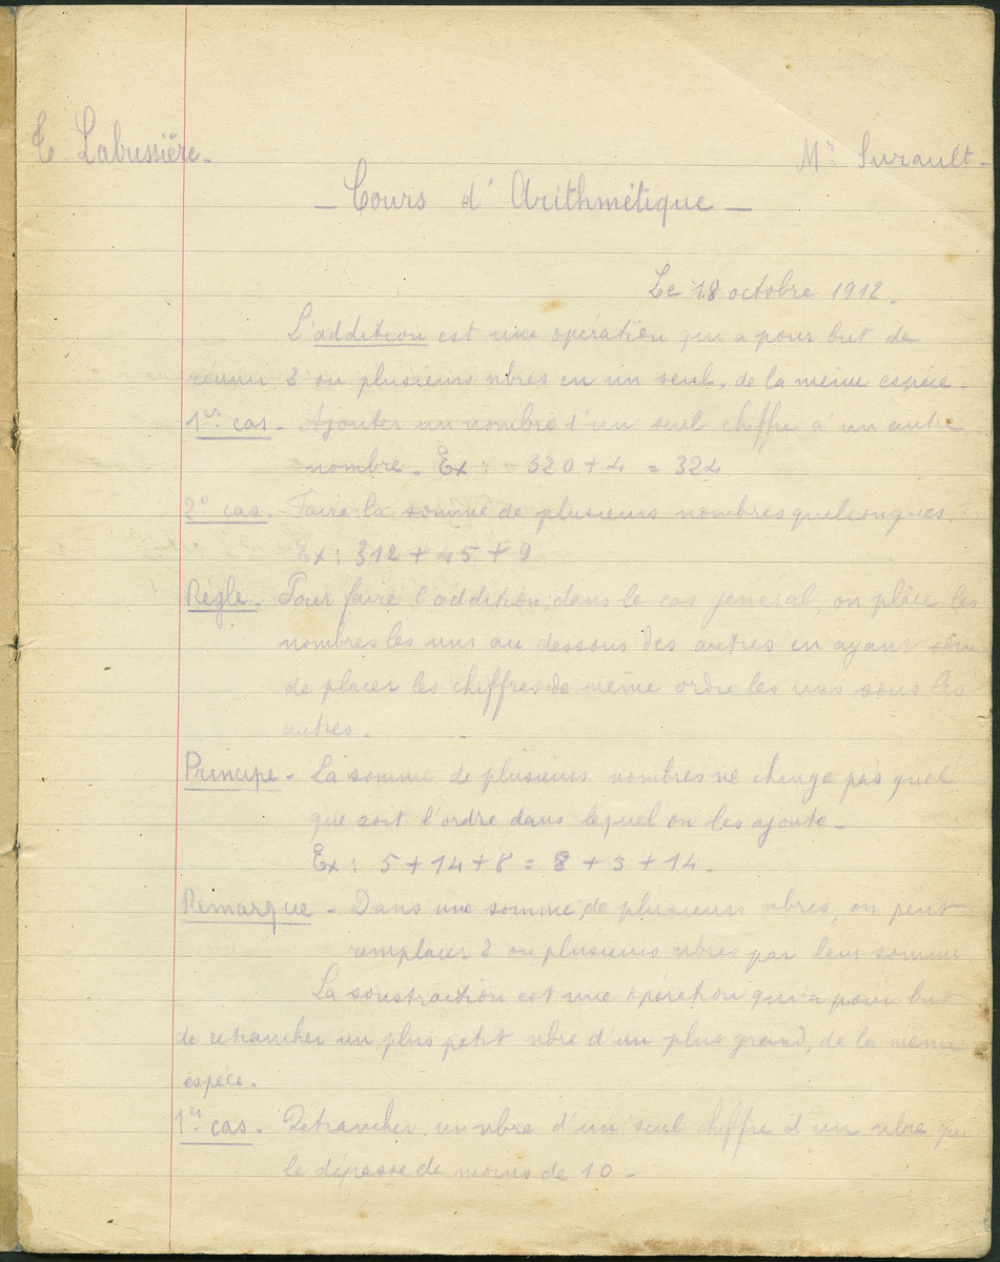 E Labussière.
Mr Surault-
- Cours d'Arithmétique -
Le 18 octobre 1912.
L'addition est une opération qui a pour but de
réunir 2 ou plusieurs nbres en un seul, de la même espèce.
1er cas. Ajouter un nombre d'un seul chiffre à un autre
nombre. Ex: 320 + 4 = 324
2e cas. Faire la somme de plusieurs nombres quelconques.
Ex: 312 + 45 + 9
Règle. Pour faire l'addition, dans le cas général, on place les
nombres les uns au dessous des autres en ayant soin
de placer les chiffres de même ordre les uns sous les
autres.
Principe - La somme de plusieurs nombres ne change pas quel
que soit l'ordre dans lequel on les ajoute -
Ex: 5 + 14 + 8 = 8 + 5 + 14.
Remarque - Dans une somme de plusieurs nbres, on peut
remplacer 2 ou plusieurs nbres par leur somme
La soustraction est une opération qui a pour but
de retrancher un plus petit nbre d'un plus grand, de la même
espèce.
1er cas. Retrancher un nbre d'un seul chiffre d'un nbre qui
le dépasse de moins de 10 -